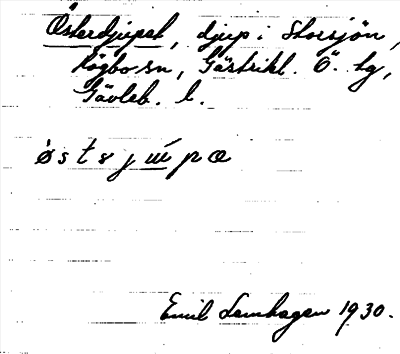 Österdjupet, djup i Storsjön,
Högbo sn, Gästrikl. Ö. tg,
Gävleb. l.
Emil Lamhagen 1930.